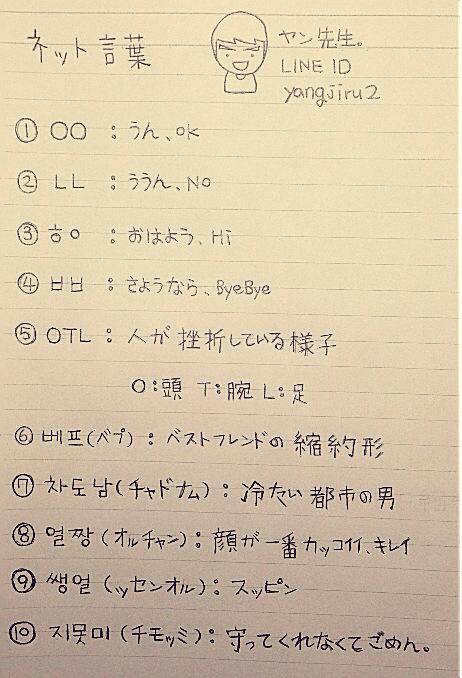 ネット言葉
ヤン先生。
LINE ID
yangjiru2
① ㅇㅇ : うん、OK
② ㄴㄴ : ううん、NO
③ ㅎㅇ : おはよう、Hi
④ ㅂㅂ : さようなら、ByeBye
⑤ OTL : 人が挫折している様子
O:頭 T:腕 L:足
⑥ 베프(ベプ) : ベストフレンドの縮約形
⑦ 차도남(チャドナム) : 冷たい都市の男
⑧ 얼짱(オルチャン) : 顔が一番カッコイイ、キレイ
⑨ 쌩얼(ッセンオル) : スッピン
⑩ 지못미(チモッミ) : 守ってくれなくてごめん。